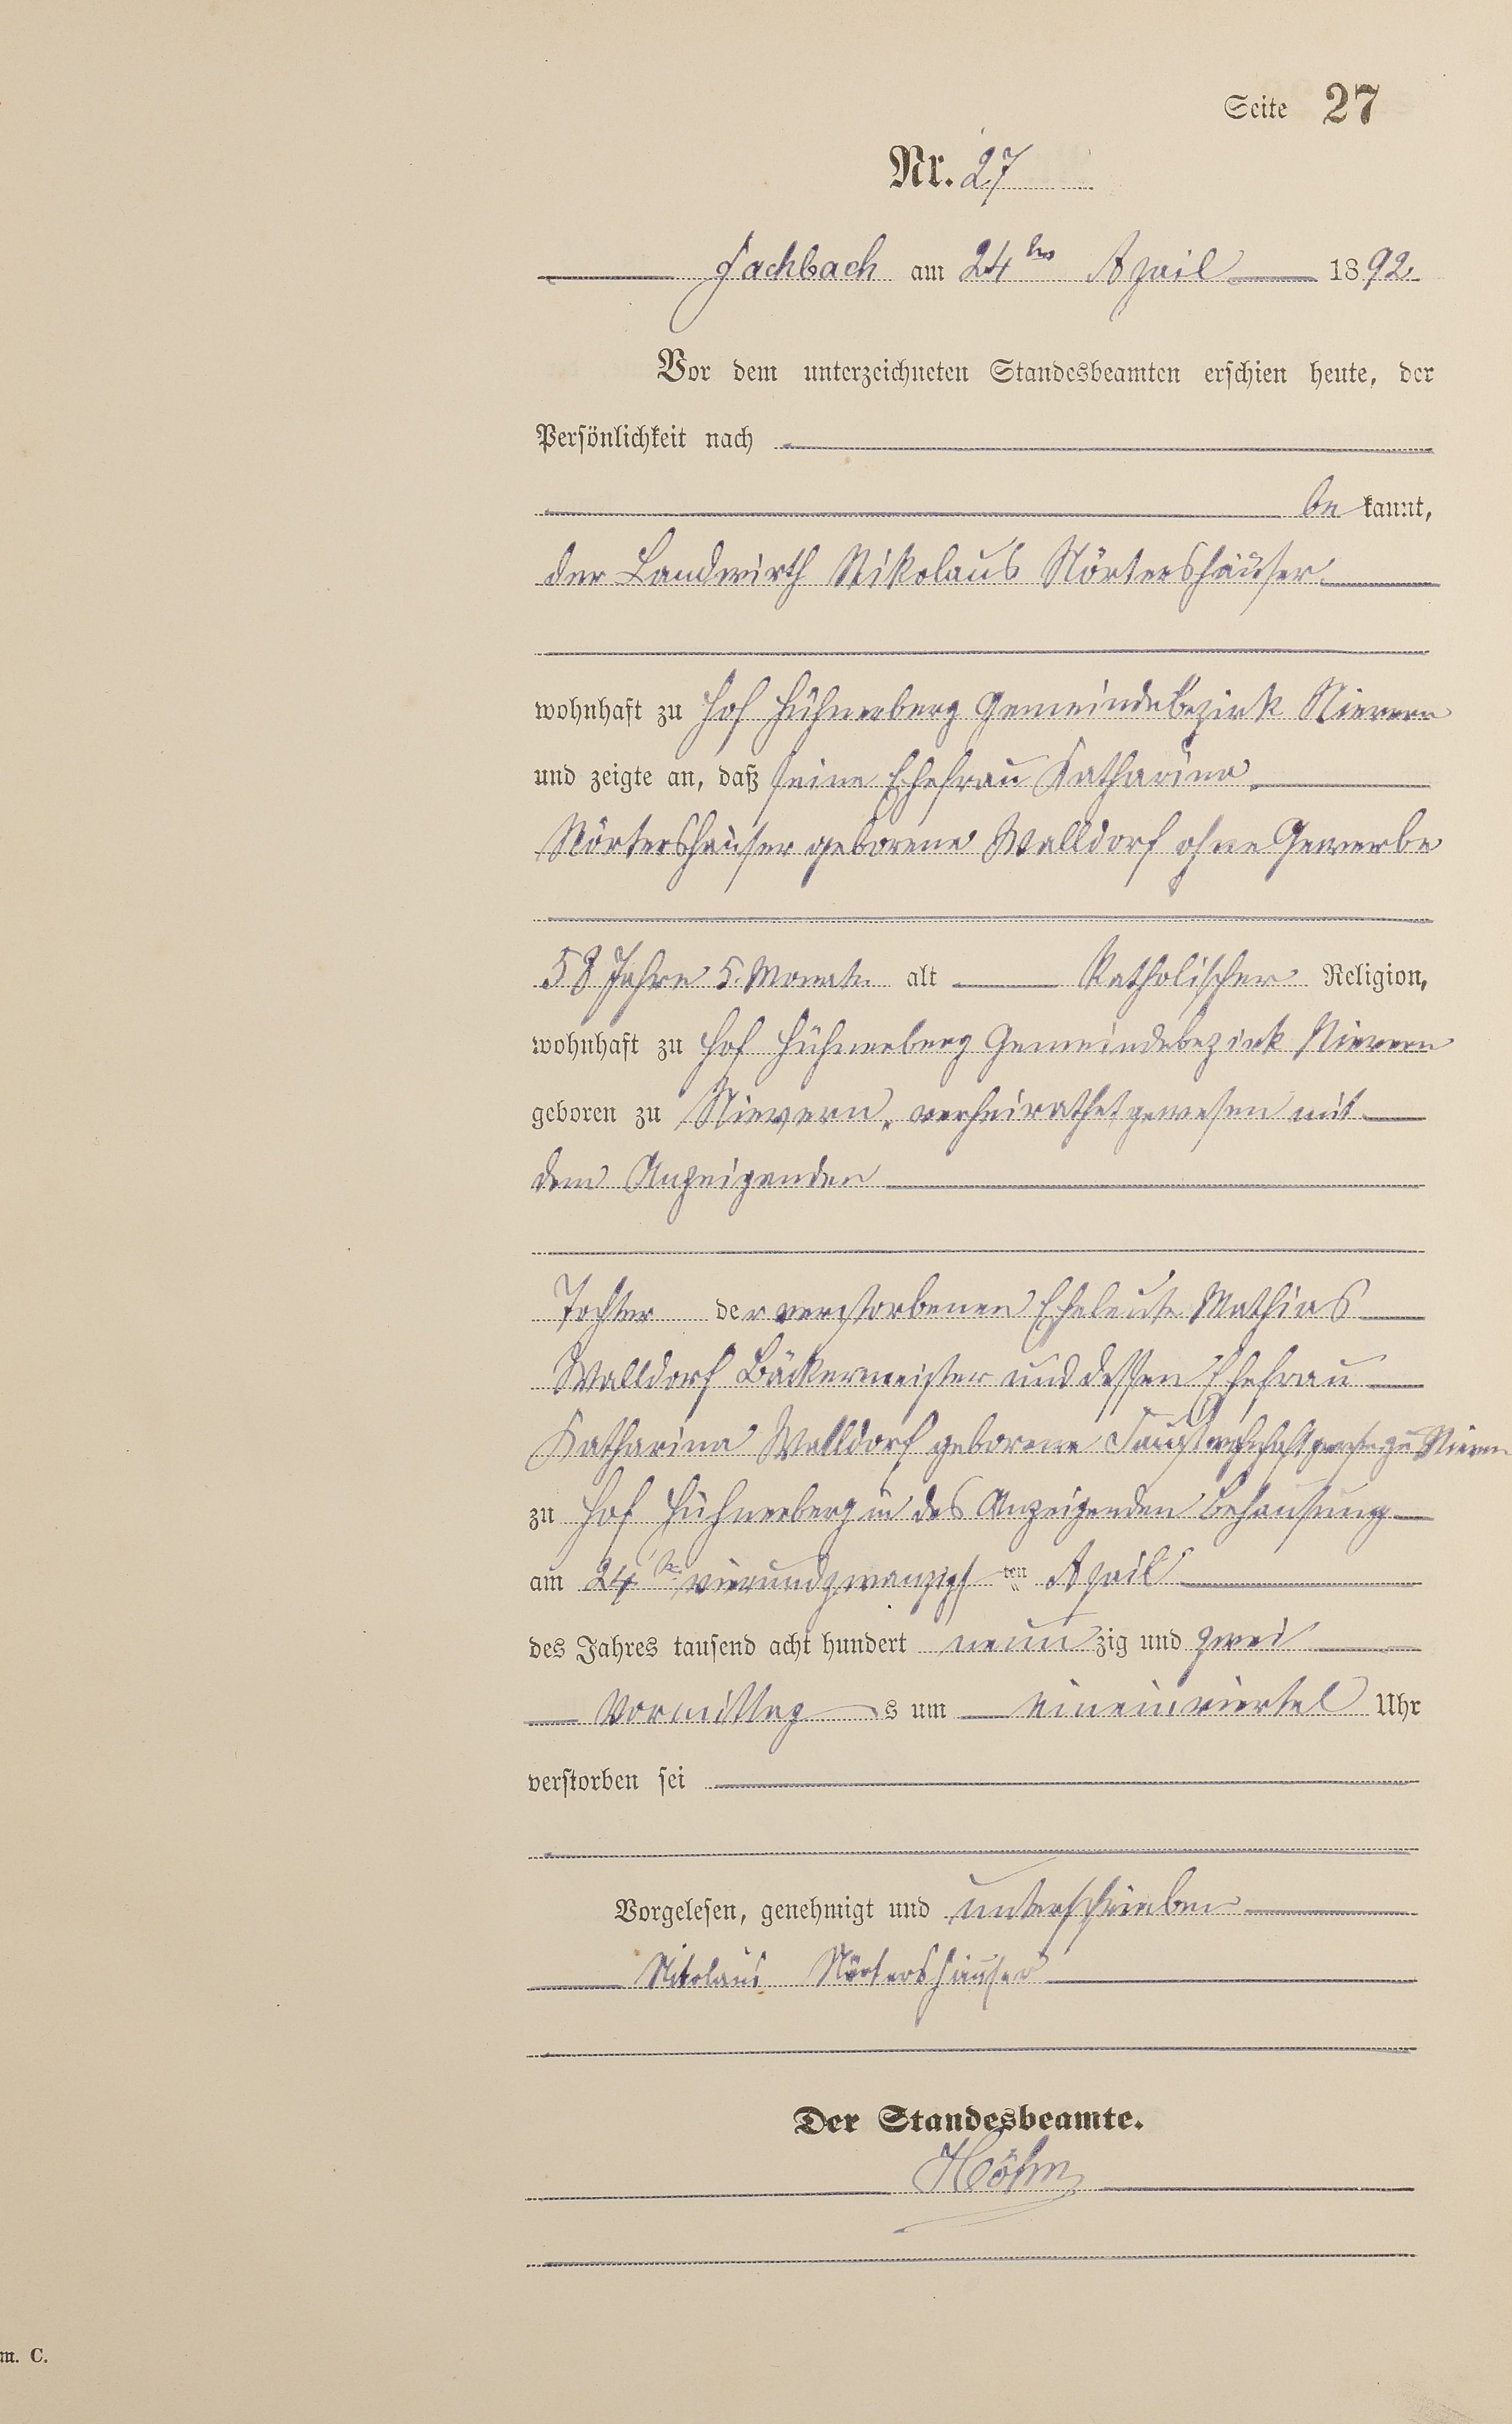 Seite 27
Nr. 27
Fachbach am 24ten April 1892
Vor dem unterzeichneten Standesbeamten erschien heute, der
Persönlichkeit nach
be kannt,
der Landwirth Nikolaus Nörtershäuser
wohnhaft zu Hof Hühnerberg Gemeindebezirk Nievern
und zeigte an, daß seine Ehefrau Katharina
Nörtershäuser geborene Walldorf ohne Gewerbe
58 Jahre 5 Monate alt Katholischer Religion,
wohnhaft zu Hof Hühnerberg Gemeindebezirk Nievern
geboren zu Nievern, verheirathet gewesen mit
dem Anzeigenden
Tochter der verstorbenen Eheleute Mathias
Walldorf Bäckermeister und dessen Ehefrau
Katharina Walldorf geborene wohnhaft gewesen zu Nievern
zu Hof Hühnerberg in des Anzeigenden Behausung
am 24ten vierundzwanzigsten April
des Jahres tausend acht hundert neunzig und zwei
Vormittags um eineinviertel Uhr
verstorben sei
Vorgelesen, genehmigt und unterschrieben
Nikolaus Nörtershäuser
Der Standesbeamte.
Höhn
m. C.